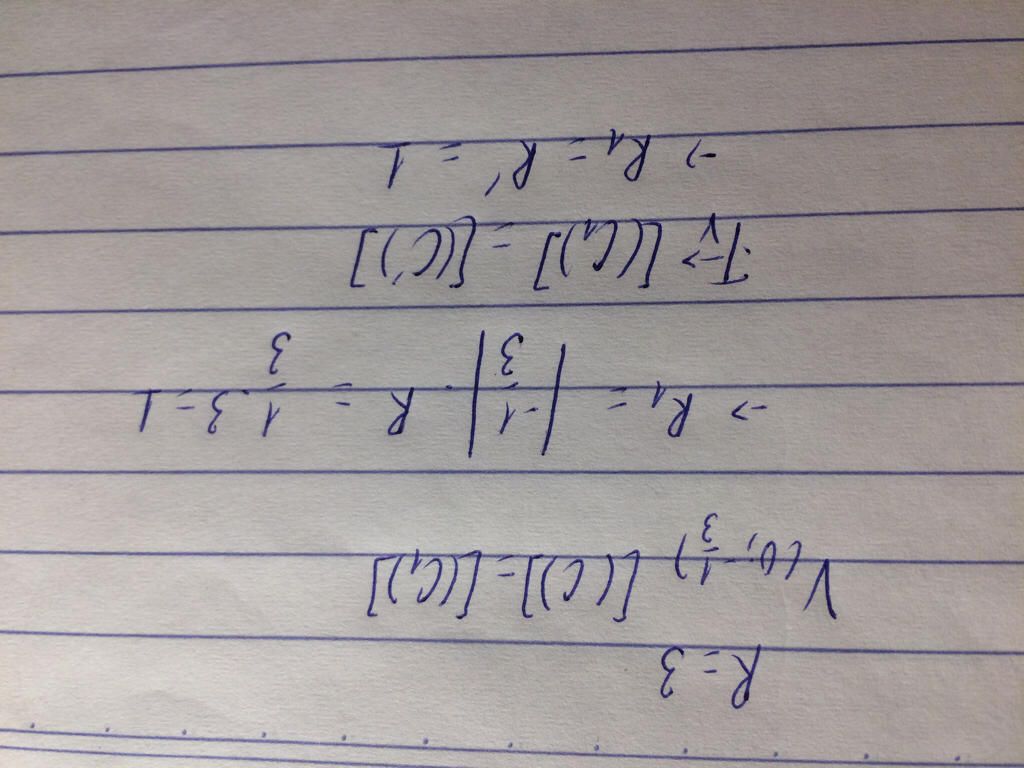 R = 3
V(0; -1/3) [(C)] = [(C₁)]
→ R₁ = |-1/3| · R = 1/3 · 3 = 1
T→v [(C₁)] = [(C')]
→ R₁ = R' = 1